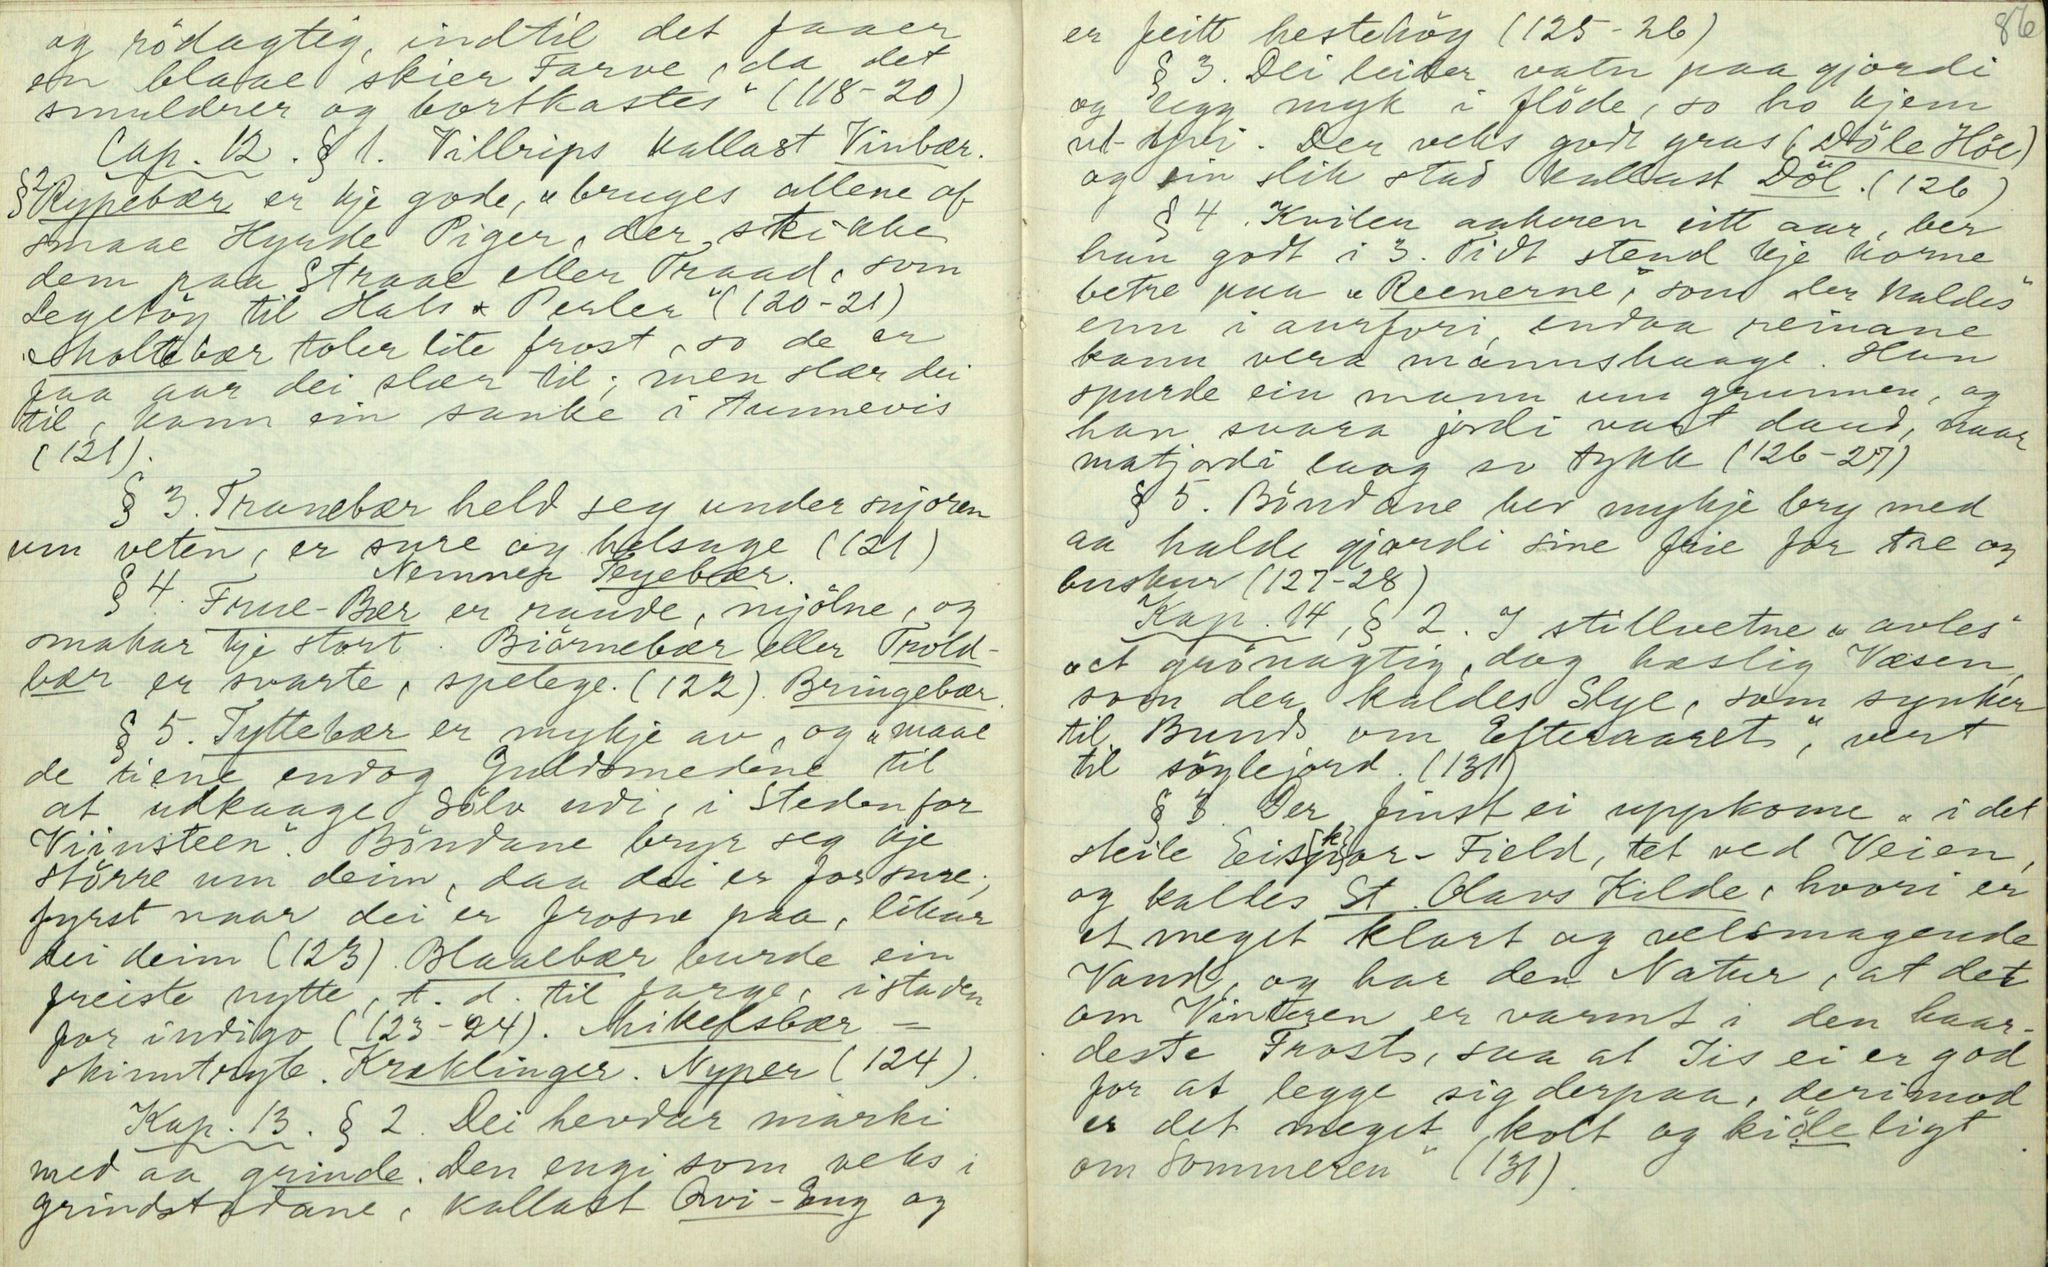 og rödagtig, indtil det faaer
en blaae skier Farve, da det
smuldrer og bortkastes" (118-20)
Cap. 12. § 1. Villrips kallast Vinbær.
§2 Rypebær er kje gode, "bruges allene af
smaae Hyrde Piger, der stikke
dem paa Straae eller Traad, som
Legetöy til Hals & Perler" (120-21)
Moltebær toler lite frost, so de er
faa aar dei slær til; men slær dei
til, kann ein sanke i tunnevis
(121).
§ 3. Tranebær held seg under snjoren
um veten, er sure og helsuge (121)
Nemner Teyebær.
§ 4. Frue-Bær er raude, mjölne, og
smakar kje stort. Biörnebær eller Trold-
bær er svarte, spelege. (122). Bringebær.
§ 5. Tyttebær er mykje av, og "maae
de tiene endog Guldsmedene til
at udkaage Sölv udi, i Steden for
Viinsteen". Böndane bryr seg kje
större um deim, daa dei er for sure;
fyrst naar dei er frosne paa, likar
dei deim (123). Blaaebær burde ein
freiste nytte, t. d. til farge, istaden
for indigo (123-24). Mikelsbær =
skinntryte. Kræklinger. Nyper (124).
Kap. 13. § 2. Dei hevdar marki
med aa grinde. Den engi som veks i
grindstodane, kallast Qvi-Eng og
86
er feitt hestehöy (125-26)
§ 3. Dei leider vatn paa gjordi
og legg myk i flöde, so ho kjem
ut- yvi. Der veks godt gras (Döle Höe)
og ein slik stad kallast Döl. (126)
§ 4. Kviler aakeren eitt aar, ber
han godt i 3. Tidt stend kje korne
betre paa "Reenerne", som der kaldes"
enn i aurfori, endaa reinane
kann vera mannshaage. Han
spurde ein mann um grunnen, og
han svara jordi vart daud, naar
matjordi laag so tykk (126-27)
§ 5. Böndane hev mykje bry med
aa halde gjordi sine frie for tre og
buskur (127-28)
Kap. 14, § 2. I stillvetne "avles"
"et grönagtig, dog hæslig Væsen,
som der kaldes Slye, som synker
til Bunds om Efteraaret", vert
til söylejord. (131)
§ 3. Der finst ei uppkome "i det
steile Field, tet ved Veien,
og kaldes St. Olavs Kilde, hvori er
et meget klart og velsmagende
Vand, og har den Natur, at det
om Vinteren er varmt i den haar-
deste Frost, saa at Iis ei er god
for at legge sig derpaa, derimod
er det meget kolt og kiöleligt
om Sommeren" (131).